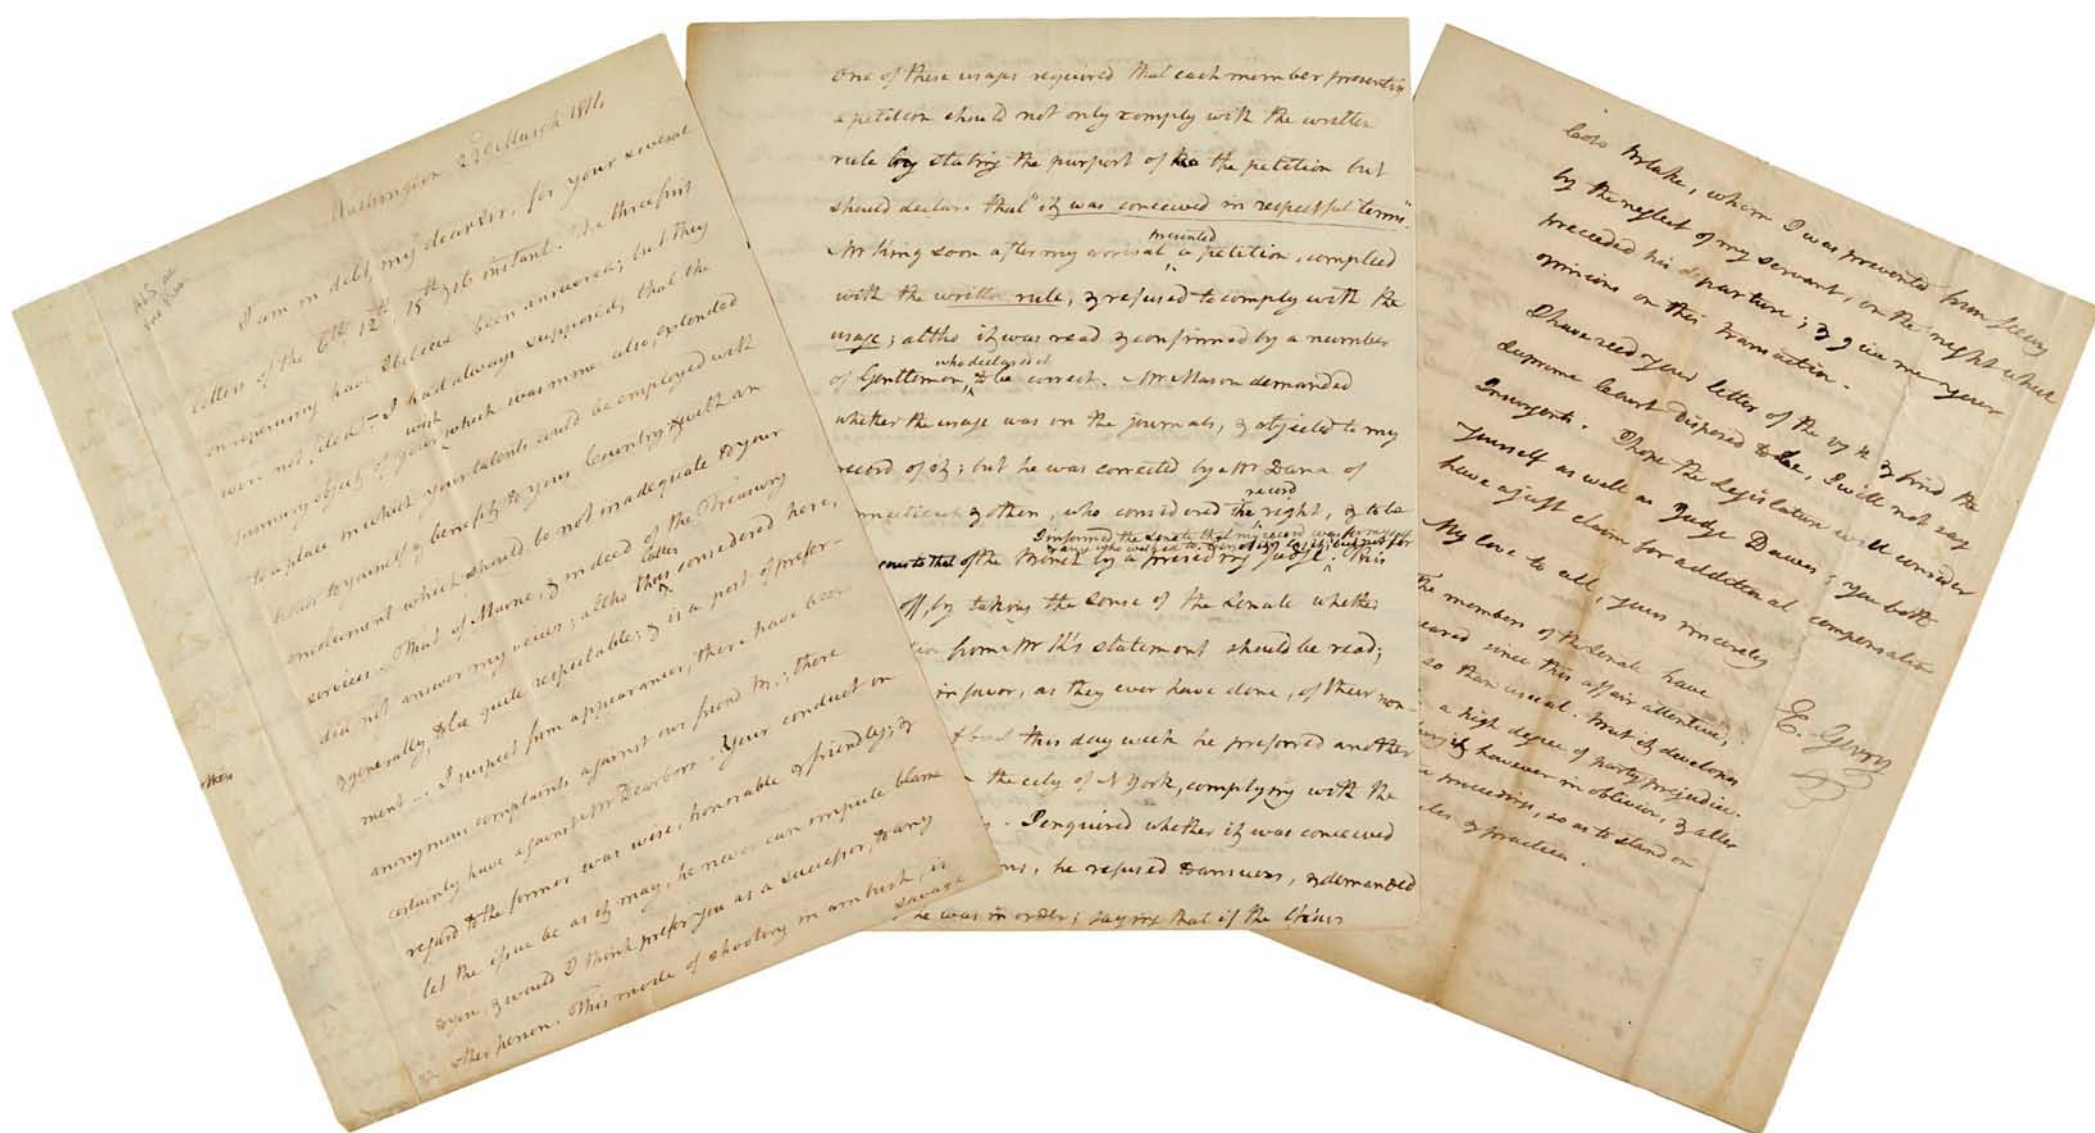 ALS as
Vice Pres.
Washington 22d March 1814
I am in debt, my dear sir, for your several
letters of the 6th 12th 15th & 16 instant. The three first
on reperusing have I believe been answered; but they
were not, item — I had always supposed, that the
summary object of your wish which was mine also, extended
to a place in which your talents could be employed with
honor to yourself & benefit to your Country; & with an
emolument which should be not inadequate to your
services. That of Marine, & indeed of the Treasury
did not answer my views; altho the latter considered here,
& generally, to be quite respectable; & is a post of prefer-
ment — I suspect from appearances, there have been
anonymous complaints against our friend M.; there
certainly have against Mr Dearborn. Your conduct in
regard to the former was wise, honorable & friendly; &
let the issue be as it may, he never can impute blame
to you, & would I think prefer you as a successor, to any
other person. This mode of shooting in ambush, is
savage
One of these usages required that each member presenting
a petition should not only comply with the written
rule by stating the purport of the petition but
should declare that "it was conceived in respectful terms".
Mr King soon after my arrival presented a petition, complied
with the written rule, & refused to comply with the
usage; altho it was read & confirmed by a number
of Gentlemen, who declared it to be correct. Mr Mason demanded
whether the usage was on the journals, & objected to my
record of it; but he was corrected by Mr Dana of
& others, who considered the record right, & to be
I informed the Senate that my record was for myself
of the Bench by a presiding judge. This
off, by taking the sense of the Senate whether
from Mr K's statement should be read;
in favor, as they ever have done, of their non-
this day week he preferred another
the city of N York, complying with the
. I enquired whether it was conceived
ms, he refused to answer, & demanded
he was in order; saying that if the Chair
Colo Blake, whom I was prevented from seeing
by the neglect of my servant, on the night which
preceeded his departure; & give me your
opinions on this transaction.
I have recd your letter of the 17th & find the
Supreme Court disposed to be, I will not say
Insurgents. I hope the Legislature will consider
yourself as well as Judge Dawes; you both
have a just claim for additional compensation
My love to all, yours sincerely
E. Gerry
The members of the Senate have
eared since this affair attentive,
so than usual. But it developes
a high degree of party prejudice.
it however in oblivion, & alter
proceedings, so as to stand on
rules & practice.